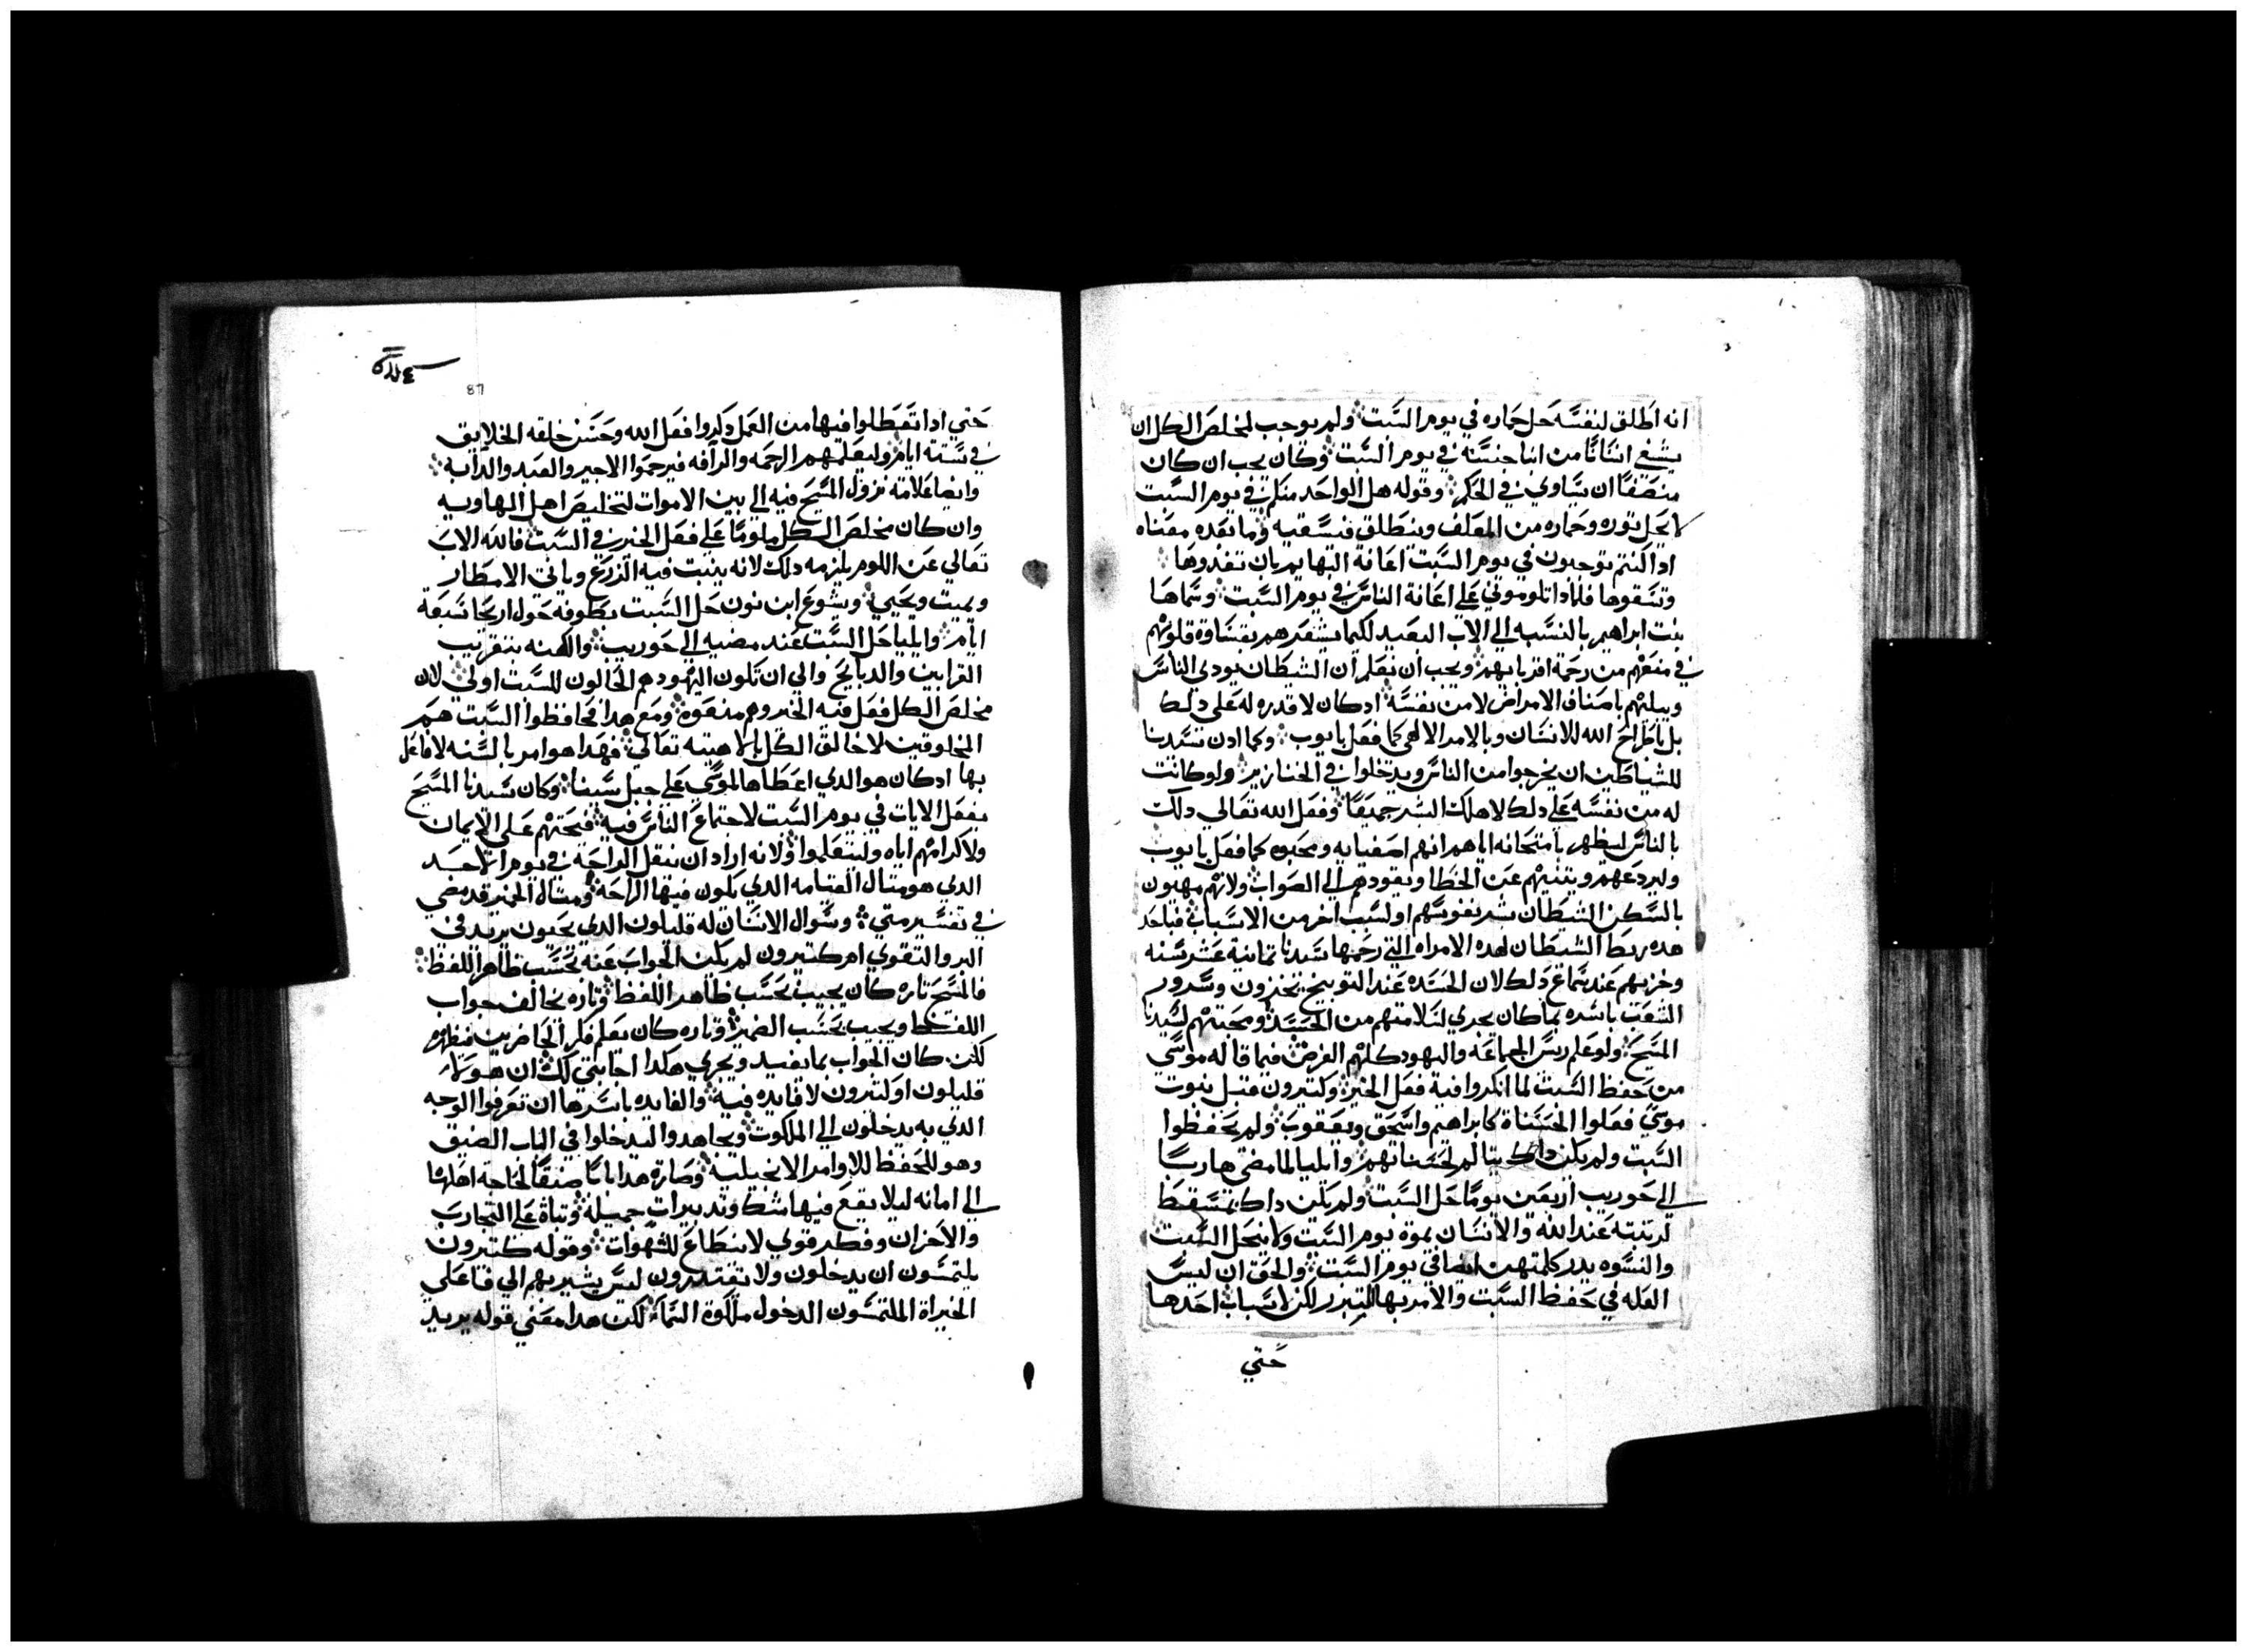 انه اطلق لنفسه حل حماره في يوم السبت ولم يوجب لمخلص الكل ان
يشفي انسانا من ابنا جنسه في يوم السبت وكان يجب ان كان
منصفا ان يساوي في الحكم وقوله هل الواحد منكم في يوم السبت
لا يحل توره وحماره من المعلف وينطلق فيسقيه وما بعده معناه
ادا كنتم توجبون في يوم السبت اعانة البهايم بان تغدوها
وتسقوها فلمادا تلوموني علي اعانة الناس في يوم السبت وسماها
بنت ابراهيم بالنسبه الي الاب البعيد لكيما يشعرهم بقساوة قلوبهم
في منعهم من رحمة اقربايهم ويجب ان نعلم ان الشيطان يودي الناس
ويبليهم باصناف الامراض لا من نفسه ادكان لا قدره له علي دلك
بل باطراح الله للانسان وبالامر الالهي كما فعل بايوب وكما ادن سيدنا
للشياطين ان يخرجوا من الناس ويدخلوا في الخنازير ولو كانت
له من نفسه علي دلك لاهلك البشر جميعا وفعل الله تعالي دلك
بالناس ليظهر بامتحانه اياهم انهم اصفيايه ومحبوه كما فعل بايوب
وليردعهم ويتنيهم عن الخطا ويقودهم الي الصواب ولانهم مهيون
بالسكن الشيطان بشر نفوسهم او لسبب اخر من الاسباب فباحد
هده ربط الشيطان لهده الامراه التي رحمها سيدنا تمانية عشر سنه
وخزيهم عند سماع دلك لان الحسده عند التوبيخ يخزون وسرور
الشعب باسره بما كان يجري لسلامتهم من الحسد ومحبتهم لسيدنا
المسيح ولو علم ريس الجماعه واليهود كلهم الغرض فيما قاله موسي
من حفظ السبت لما انكروا فيه فعل الخير وكتيرون قبل نبوت
موسي فعلوا الحسناة كابراهيم واسحق ويعقوب ولم يحفظوا
السبت ولم يكن داك بتالم لحسناتهم وايليا لما مضي هاربا
الي حوريب اربعين يوما حل السبت ولم يكن داك بمسقط
لرتبته عند الله والانسان بموة يوم السبت ولا ينحل السبت
والنسوه يدركلمتهن ايضا في يوم السبت والحق ان ليس
العله في حفظ السبت والامر بها للتبرر لكن لاسباب احدها
حتي
حتي ادا تعطلوا فيها من العمل دكروا فعل الله وحسن خلقه الخلايق
في ستة ايام وليعلمهم الرحمه والرافه فيرحموا الاجير والعبد والدابه
وايضا علامة نزول المسيح فيه الي بين الاموات لتخليص اهل الهاويه
وان كان مخلص الكل ملوما علي فعل الخير في السبت فالله الاب
تعالي عن اللوم يلزمه دلك لانه ينبت فيه الزرع وياتي الامطار
ويميت ويحيي ويشوع ابن نون حل السبت بطوفه حول اريحا سبعة
ايام وايليا حل السبت عند مضيه الي حوريب والكهنه بتقريب
القرابين والدبايح والي ان تكون اليهود هم الحالون للسبت اولي لان
مخلص الكل فعل فيه الخير وهم منعوه ومع هدا فحافظوا السبت هم
المخلوقين لا خالق الكل بالاهيته تعالي فهدا هو امر بالسنه لا فاعل
بها ادكان هو الدي اعطاها لموسي علي جبل سينا وكان سيدنا المسيح
يفعل الايات في يوم السبت لاجتماع الناس فيه فيحتهم علي الايمان
ولاكرامهم اياه وليتعلموا ولانه اراد ان ينقل الراحة في يوم الاحد
الدي هو متال القيامه الدي يكون فيها الراحه ومتال الخمير قد مضي
في تفسير متي وسوال الانسان له قليلون الدي يحيون يريد في
البر والتقوي ام كتيرون لم يكن الجواب عنه بحسب ظاهر اللفظ
فالمسيح تاره كان يجيب بحسب ظاهر اللفظ وتاره يخالف جواب
اللفظ ويجيب بحسب الضمير وتاره كان يعلم فكر الحاضرين فيظهره
لكن كان الجواب بما يفيد ويجري هكدا اجابتي لك ان هولاء
قليلون او كتيرون لا فايده فيه والفايده باسرها ان تعرفوا الوجه
الدي به يدخلون الي الملكوت ويجاهدوا ليدخلوا في الباب الضيق
وهو للحفظ للاوامر الانجيليه وصارة هدا بابا ضيقا لحاجة اهلها
الي امانه ليلا يقع فيها شك وتدبيرات جميله وتباة علي التجارب
والاحزان وفكر قوي لا ينطاع للشهوات وقوله كتيرون
يلتمسون ان يدخلون ولا يقتدرون ليس يشير بهم الي فاعلي
الخيراة الملتمسون الدخول ملكوة السماء لكن هدا معني قوله يريد